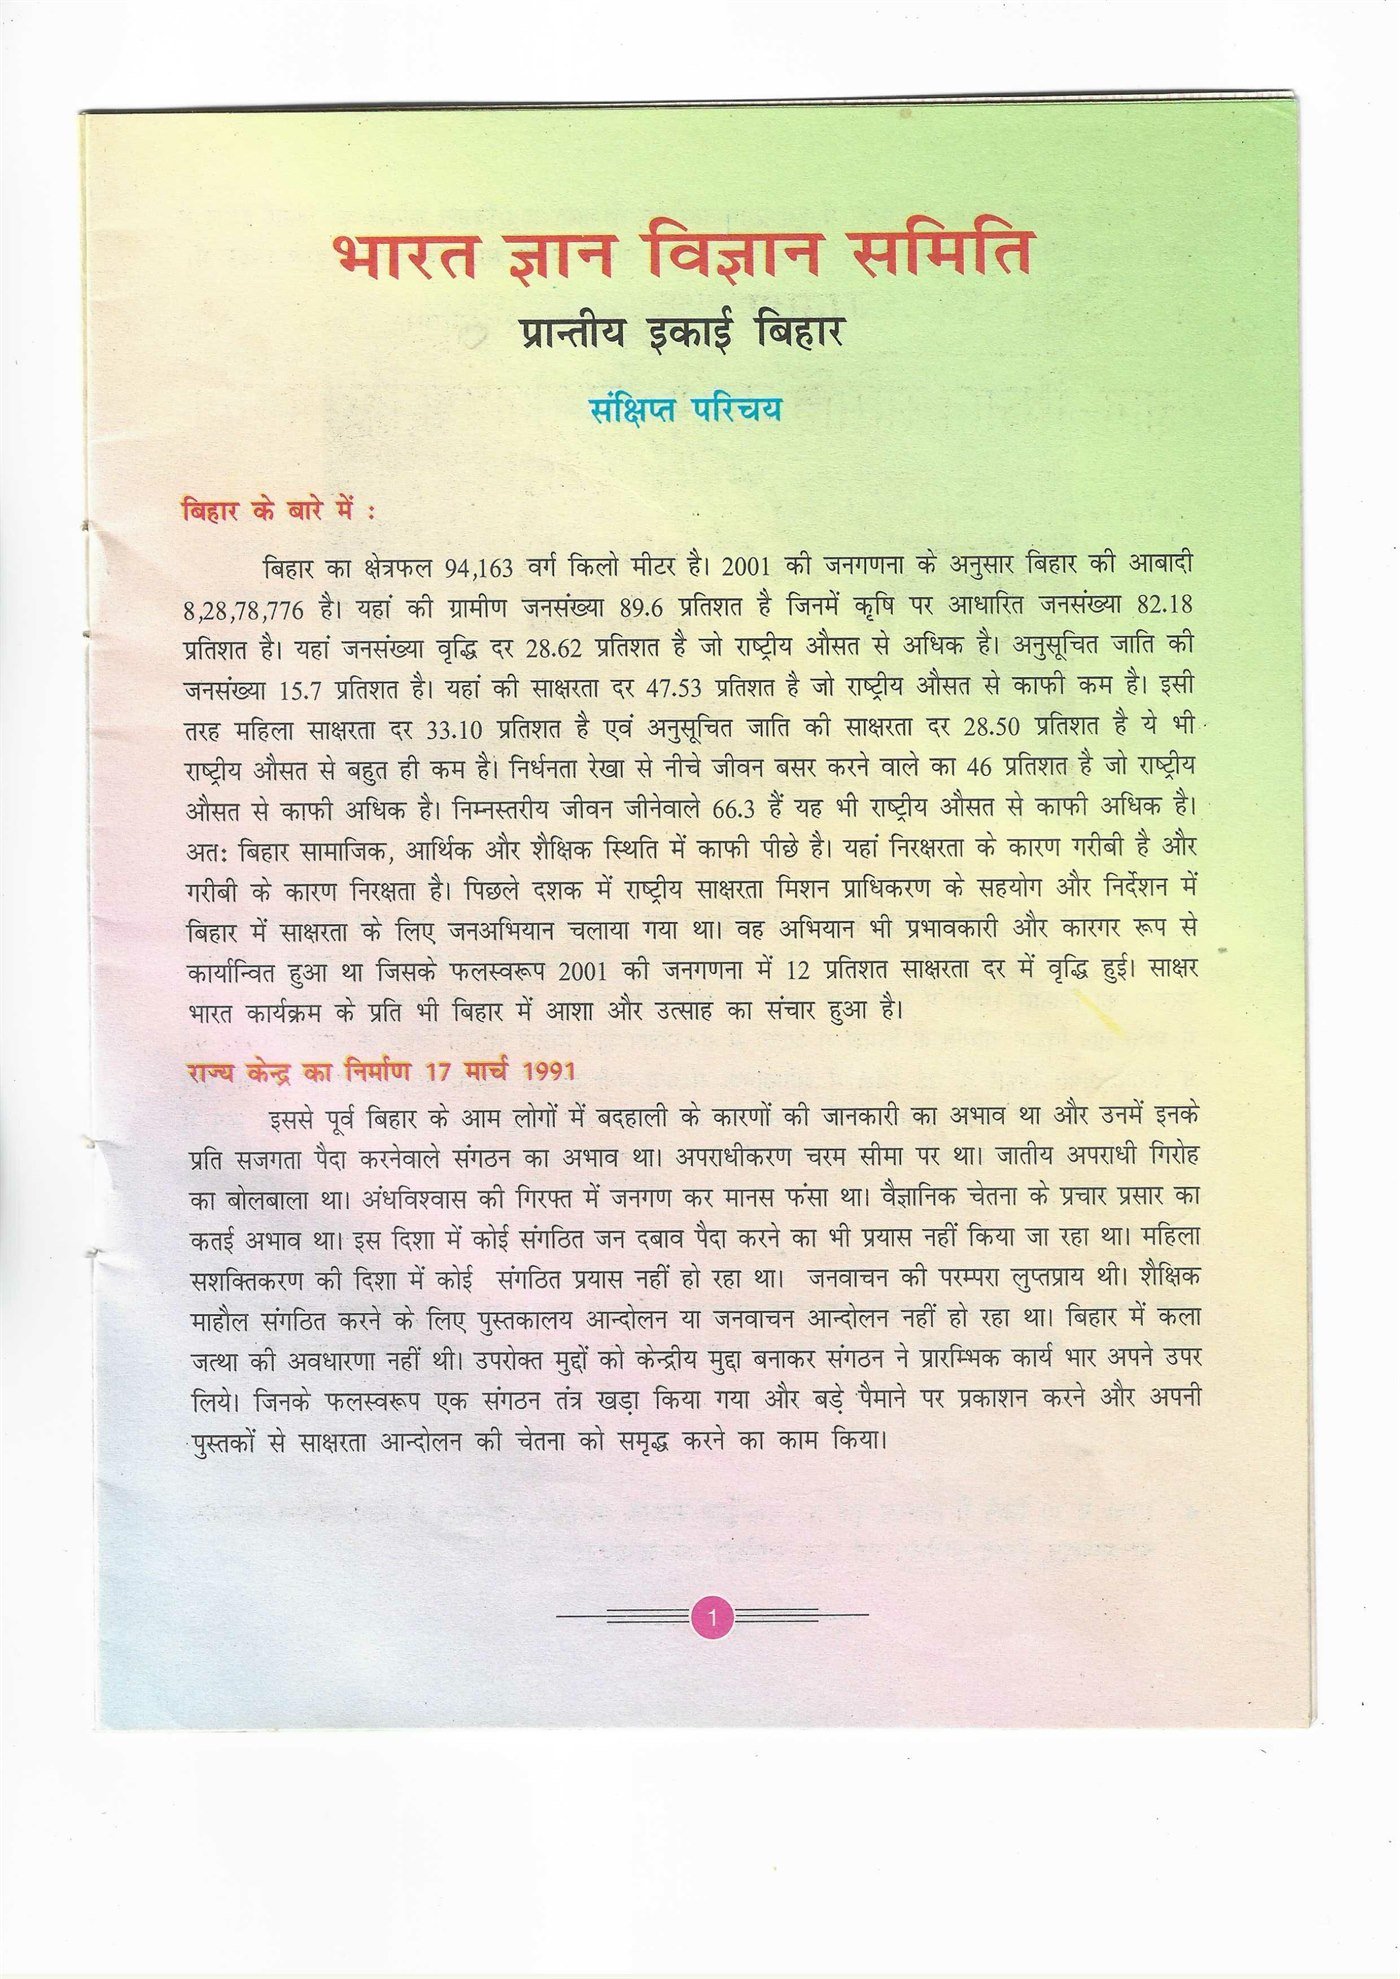 भारत ज्ञान विज्ञान समिति
प्रान्तीय इकाई बिहार
संक्षिप्त परिचय
बिहार के बारे में :
बिहार का क्षेत्रफल 94,163 वर्ग किलो मीटर है। 2001 की जनगणना के अनुसार बिहार की आबादी
8,28,78,776 है। यहां की ग्रामीण जनसंख्या 89.6 प्रतिशत है जिनमें कृषि पर आधारित जनसंख्या 82.18
प्रतिशत है। यहां जनसंख्या वृद्धि दर 28.62 प्रतिशत है जो राष्ट्रीय औसत से अधिक है। अनुसूचित जाति की
जनसंख्या 15.7 प्रतिशत है। यहां की साक्षरता दर 47.53 प्रतिशत है जो राष्ट्रीय औसत से काफी कम है। इसी
तरह महिला साक्षरता दर 33.10 प्रतिशत है एवं अनुसूचित जाति की साक्षरता दर 28.50 प्रतिशत है ये भी
राष्ट्रीय औसत से बहुत ही कम है। निर्धनता रेखा से नीचे जीवन बसर करने वाले का 46 प्रतिशत है जो राष्ट्रीय
औसत से काफी अधिक है। निम्नस्तरीय जीवन जीनेवाले 66.3 हैं यह भी राष्ट्रीय औसत से काफी अधिक है।
अतः बिहार सामाजिक, आर्थिक और शैक्षिक स्थिति में काफी पीछे है। यहां निरक्षरता के कारण गरीबी है और
गरीबी के कारण निरक्षता है। पिछले दशक में राष्ट्रीय साक्षरता मिशन प्राधिकरण के सहयोग और निर्देशन में
बिहार में साक्षरता के लिए जनअभियान चलाया गया था। वह अभियान भी प्रभावकारी और कारगर रूप से
कार्यान्वित हुआ था जिसके फलस्वरूप 2001 की जनगणना में 12 प्रतिशत साक्षरता दर में वृद्धि हुई। साक्षर
भारत कार्यक्रम के प्रति भी बिहार में आशा और उत्साह का संचार हुआ है।
राज्य केन्द्र का निर्माण 17 मार्च 1991
इससे पूर्व बिहार के आम लोगों में बदहाली के कारणों की जानकारी का अभाव था और उनमें इनके
प्रति सजगता पैदा करनेवाले संगठन का अभाव था। अपराधीकरण चरम सीमा पर था। जातीय अपराधी गिरोह
का बोलबाला था। अंधविश्वास की गिरफ्त में जनगण कर मानस फंसा था। वैज्ञानिक चेतना के प्रचार प्रसार का
कतई अभाव था। इस दिशा में कोई संगठित जन दबाव पैदा करने का भी प्रयास नहीं किया जा रहा था। महिला
सशक्तिकरण की दिशा में कोई संगठित प्रयास नहीं हो रहा था। जनवाचन की परम्परा लुप्तप्राय थी। शैक्षिक
माहौल संगठित करने के लिए पुस्तकालय आन्दोलन या जनवाचन आन्दोलन नहीं हो रहा था। बिहार में कला
जत्था की अवधारणा नहीं थी। उपरोक्त मुद्दों को केन्द्रीय मुद्दा बनाकर संगठन ने प्रारम्भिक कार्य भार अपने उपर
लिये। जिनके फलस्वरूप एक संगठन तंत्र खड़ा किया गया और बड़े पैमाने पर प्रकाशन करने और अपनी
पुस्तकों से साक्षरता आन्दोलन की चेतना को समृद्ध करने का काम किया।
1